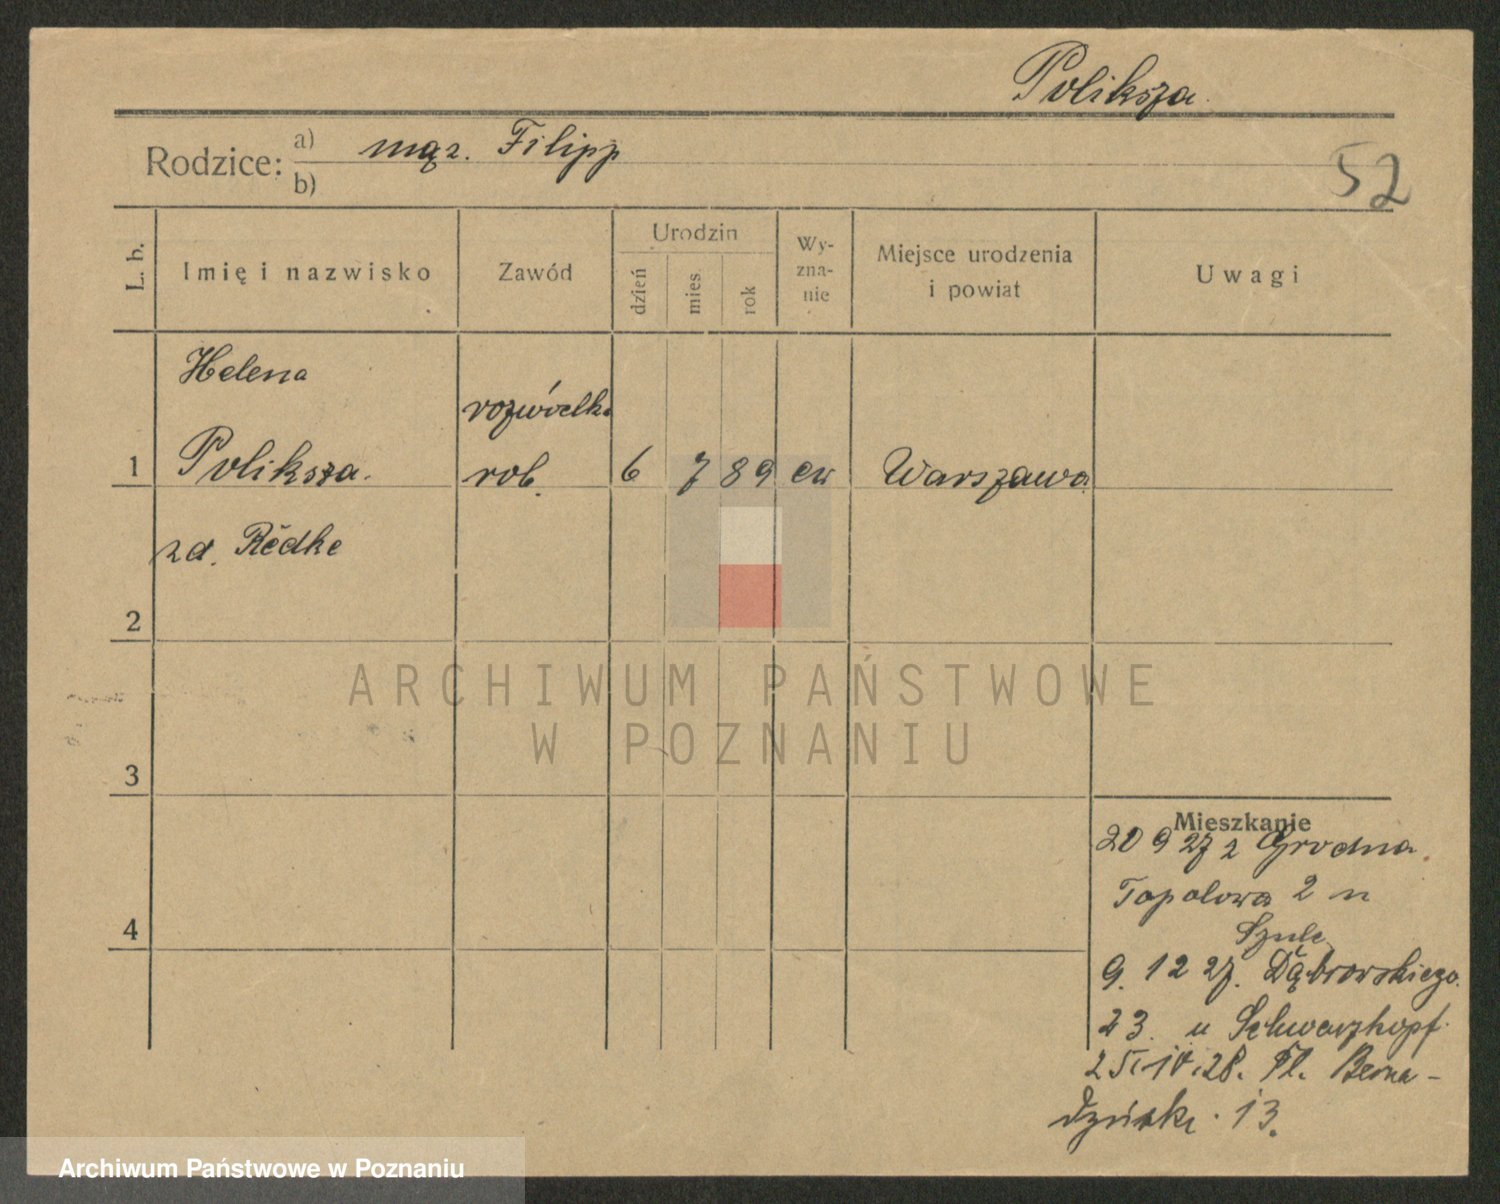 Poliksza.
Rodzice: a) mąż. Filipp
b)
52
L. b. Imię i nazwisko Zawód Urodzin dzień mies. rok Wy-zna-nie Miejsce urodzenia i powiat Uwagi
Helena
rozwódka
1 Poliksza. rob. 6 7 89 ew Warszawa
zd. Rëdke
2
ARCHIWUM PAŃSTWOWE
W POZNANIU
3
Mieszkanie
20 9 27 z Grodna.
Topolowa 2 u
4
Szulc
9. 12 27. Dąbrowskiego.
23. u Schwarzkopf.
25.10.28. Pl. Berna-
dyński. 13.
Archiwum Państwowe w Poznaniu